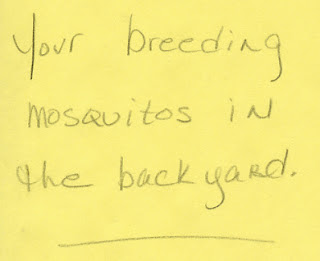 your breeding
mosquitos in
the backyard.